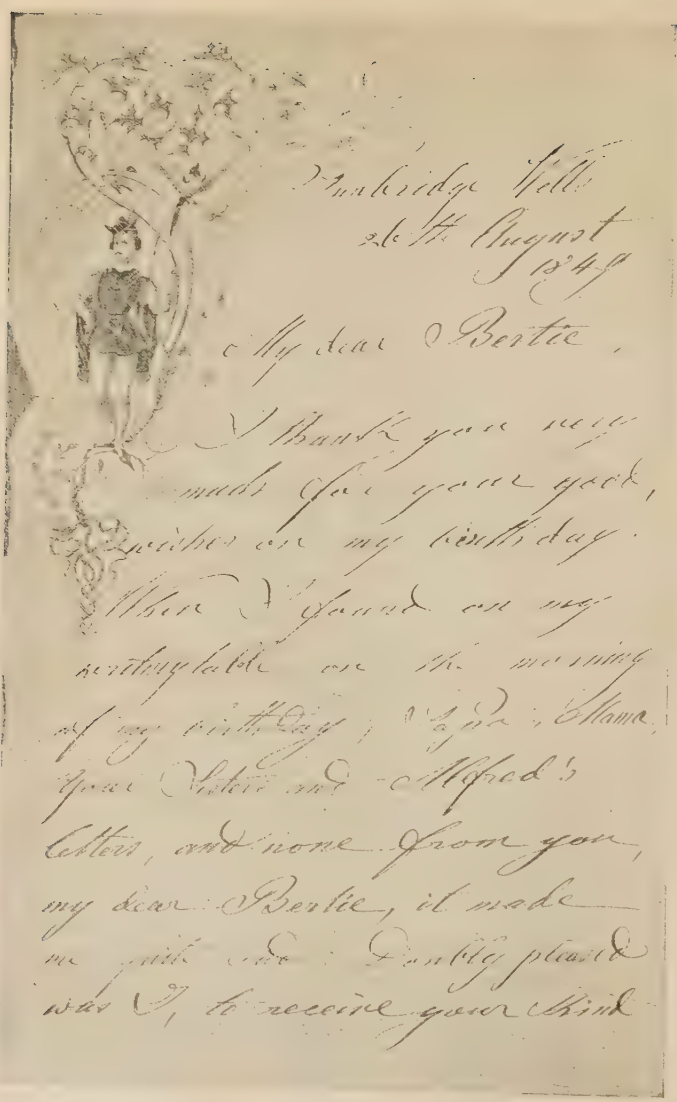 Tunbridge Wells
26th August
1849
My dear Bertie,
I thank you very
much for your good,
wishes on my birthday.
When I found on my
writingtable on the morning
of my birthday, Papa, Mama,
your Sisters and Alfred's
letters, and none from you,
my dear Bertie, it made
me quite sad. Doubly pleased
was I, to receive your kind